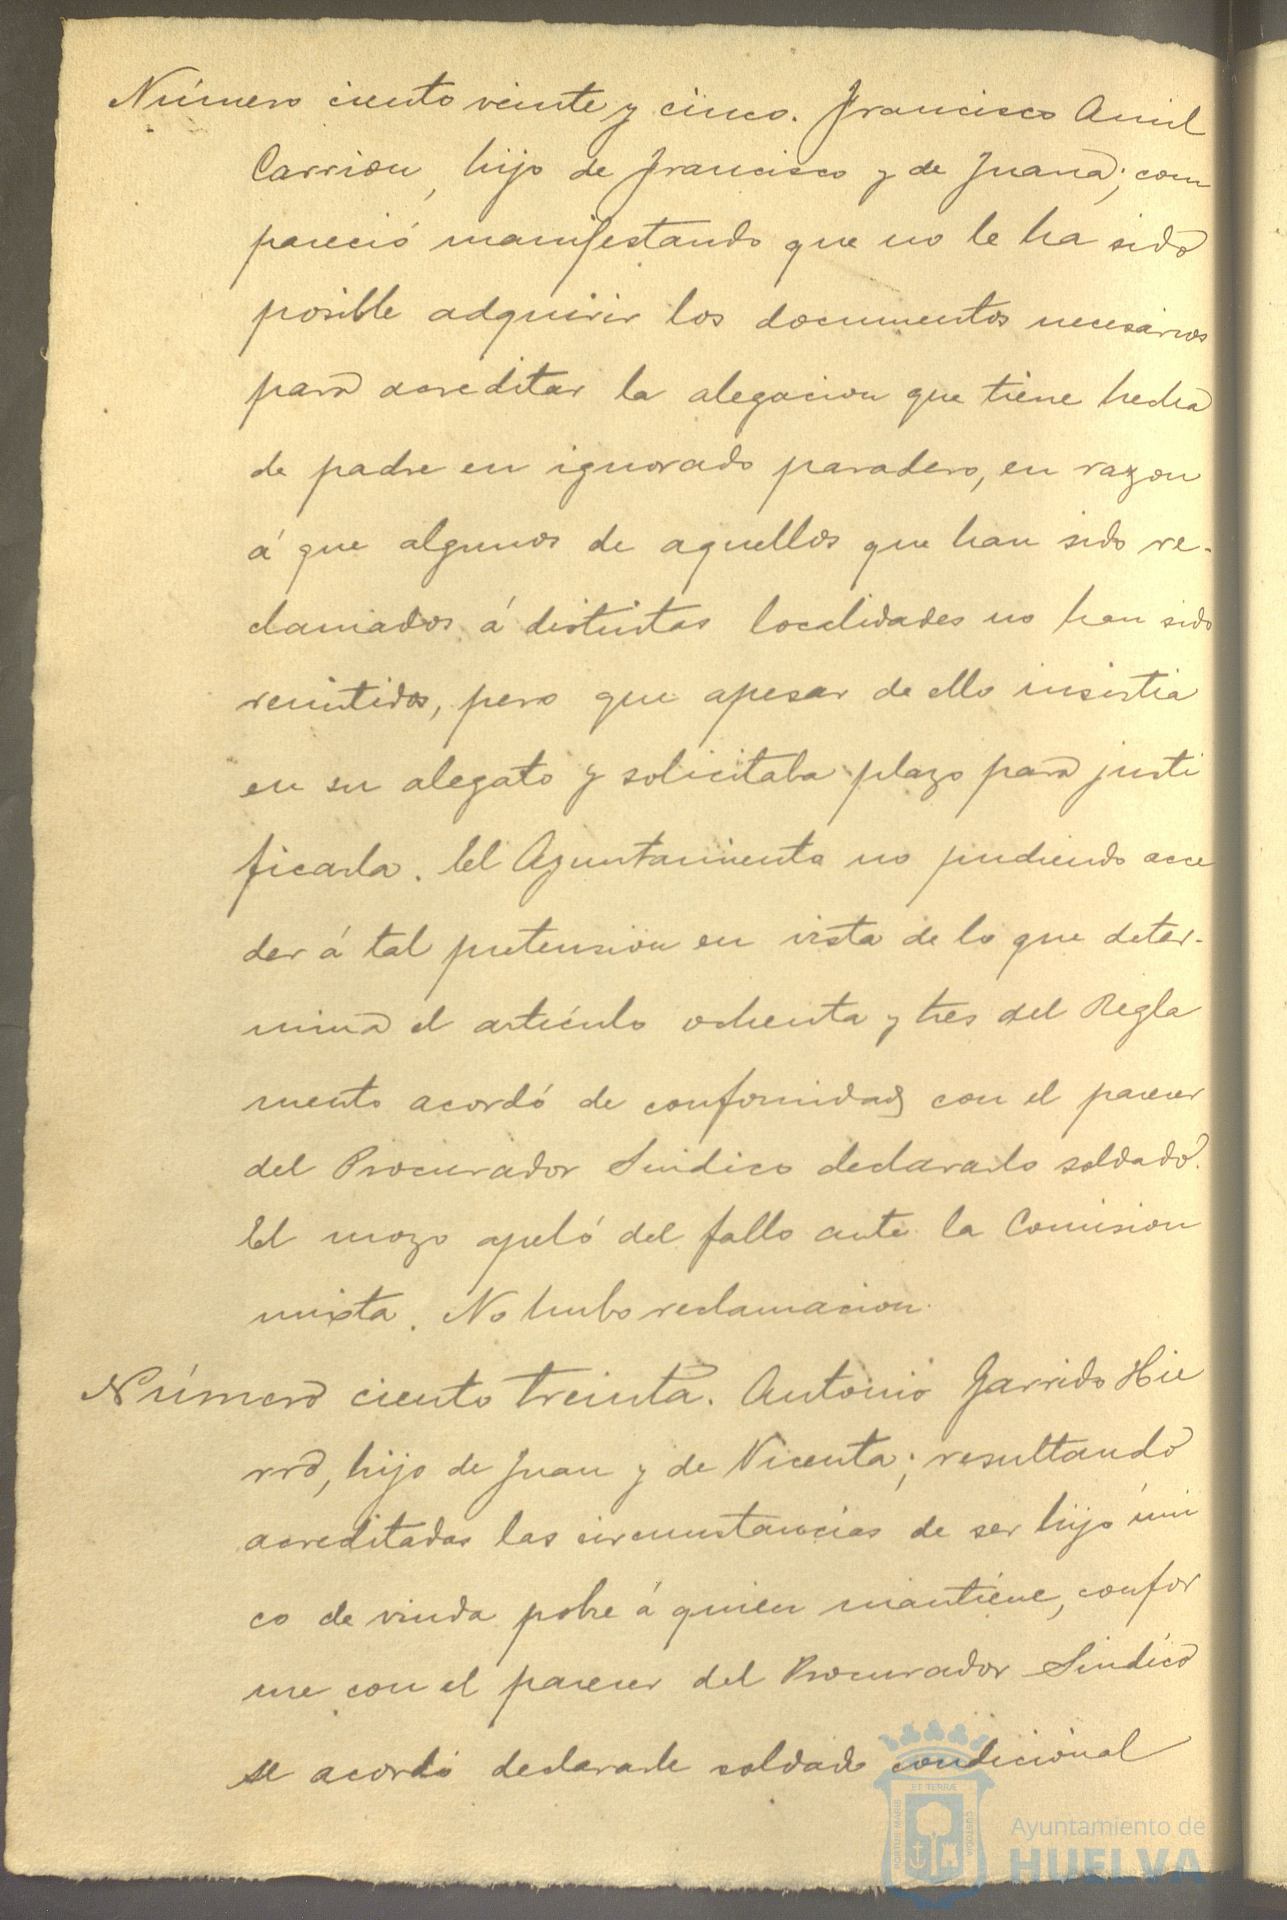 Número ciento veinte y cinco. Francisco Amil
Carrion, hijo de Francisco y de Juana; com
pareció manifestando que no le ha sido
posible adquirir los documentos necesarios
para acreditar la alegacion que tiene hecha
de padre en ignorado paradero, en razon
á que algunos de aquellos que han sido re-
clamados á distintas localidades no han sido
remitidos, pero que apesar de ello insistia
en su alegato y solicitaba plazo para justi
ficarla. El Ayuntamiento no pudiendo acce
der á tal pretension en vista de lo que deter-
mina el artículo ochenta y tres del Regla
mento acordó de conformidad con el parecer
del Procurador Sindico declararlo soldado.
El mozo apeló del fallo ante la Comision
mixta. No hubo reclamacion.
Número ciento treinta. Antonio Garrido Hie
rro, hijo de Juan y de Vicenta; resultando
acreditadas las circunstancias de ser hijo úni
co de viuda pobre á quien mantiene, confor
me con el parecer del Procurador Sindico
se acordó declararle soldado condicional
PORTUS MARIS
ET TERRÆ
CUSTODIA
Ayuntamiento de
HUELVA